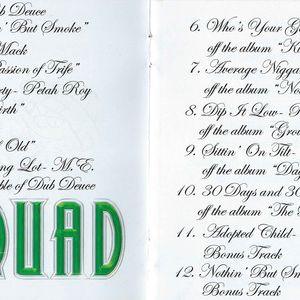 b Deuce
' But Smoke"
Mack
assion of Trife"
ty- Petah Roy
irth"
f Old"
ng Lot- M.E.
ble of Dub Deuce
QUAD
6. Who's Your G
off the album "K
7. Average Nigga
off the album "No
8. Dip It Low- F
off the album "Gro
9. Sittin' On Tilt-
off the album "Day
10. 30 Days and 30
off the album "The
11. Adopted Child-
Bonus Track
12. Nothin' But Smo
Bonus Track